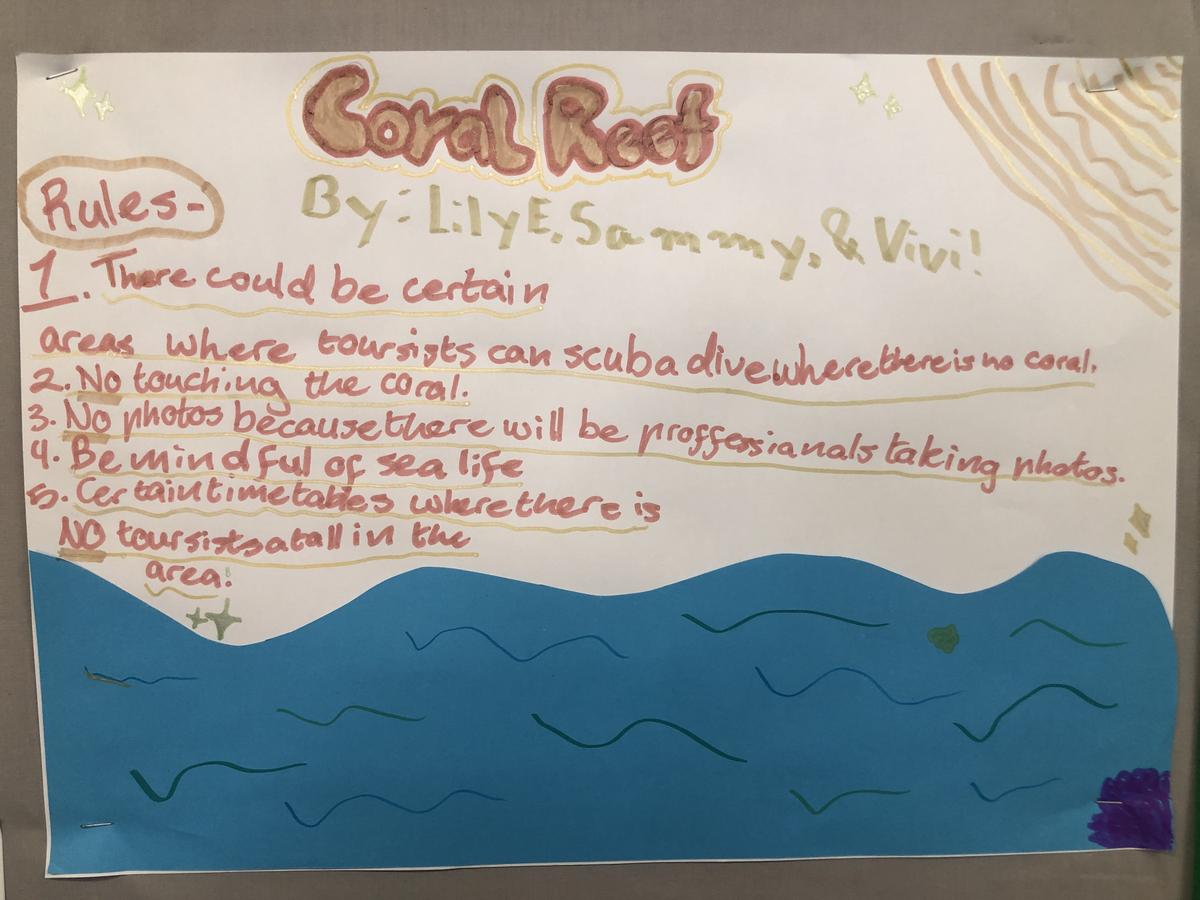 Coral Reef
By: Lily E, Sammy, & Vivi!
Rules-
1. There could be certain
areas where toursists can scuba dive where there is no coral.
2. No touching the coral.
3. No photos because there will be proffessianals taking photos.
4. Be mindful of sea life
5. Certain time tables where there is
NO toursists at all in the
area!